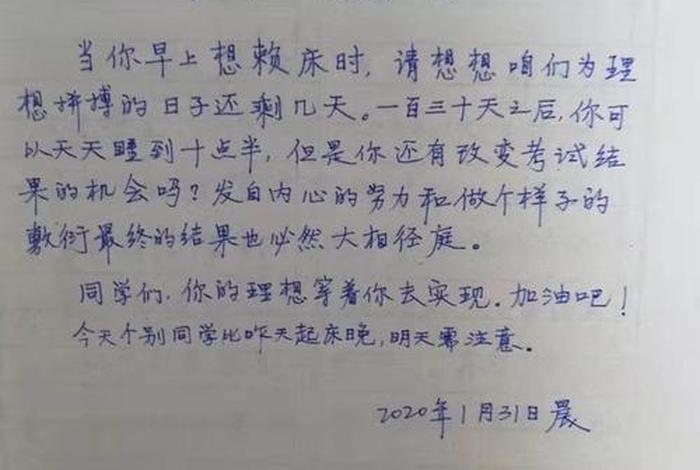 当你早上想赖床时，请想想咱们为理
想拼搏的日子还剩几天。一百三十天之后，你可
以天天睡到十点半，但是你还有改变考试结
果的机会吗？发自内心的努力和做个样子的
敷衍最终的结果也必然大相径庭。
同学们，你的理想等着你去实现．加油吧！
今天个别同学比昨天起床晚，明天需注意。
2020年1月31日晨